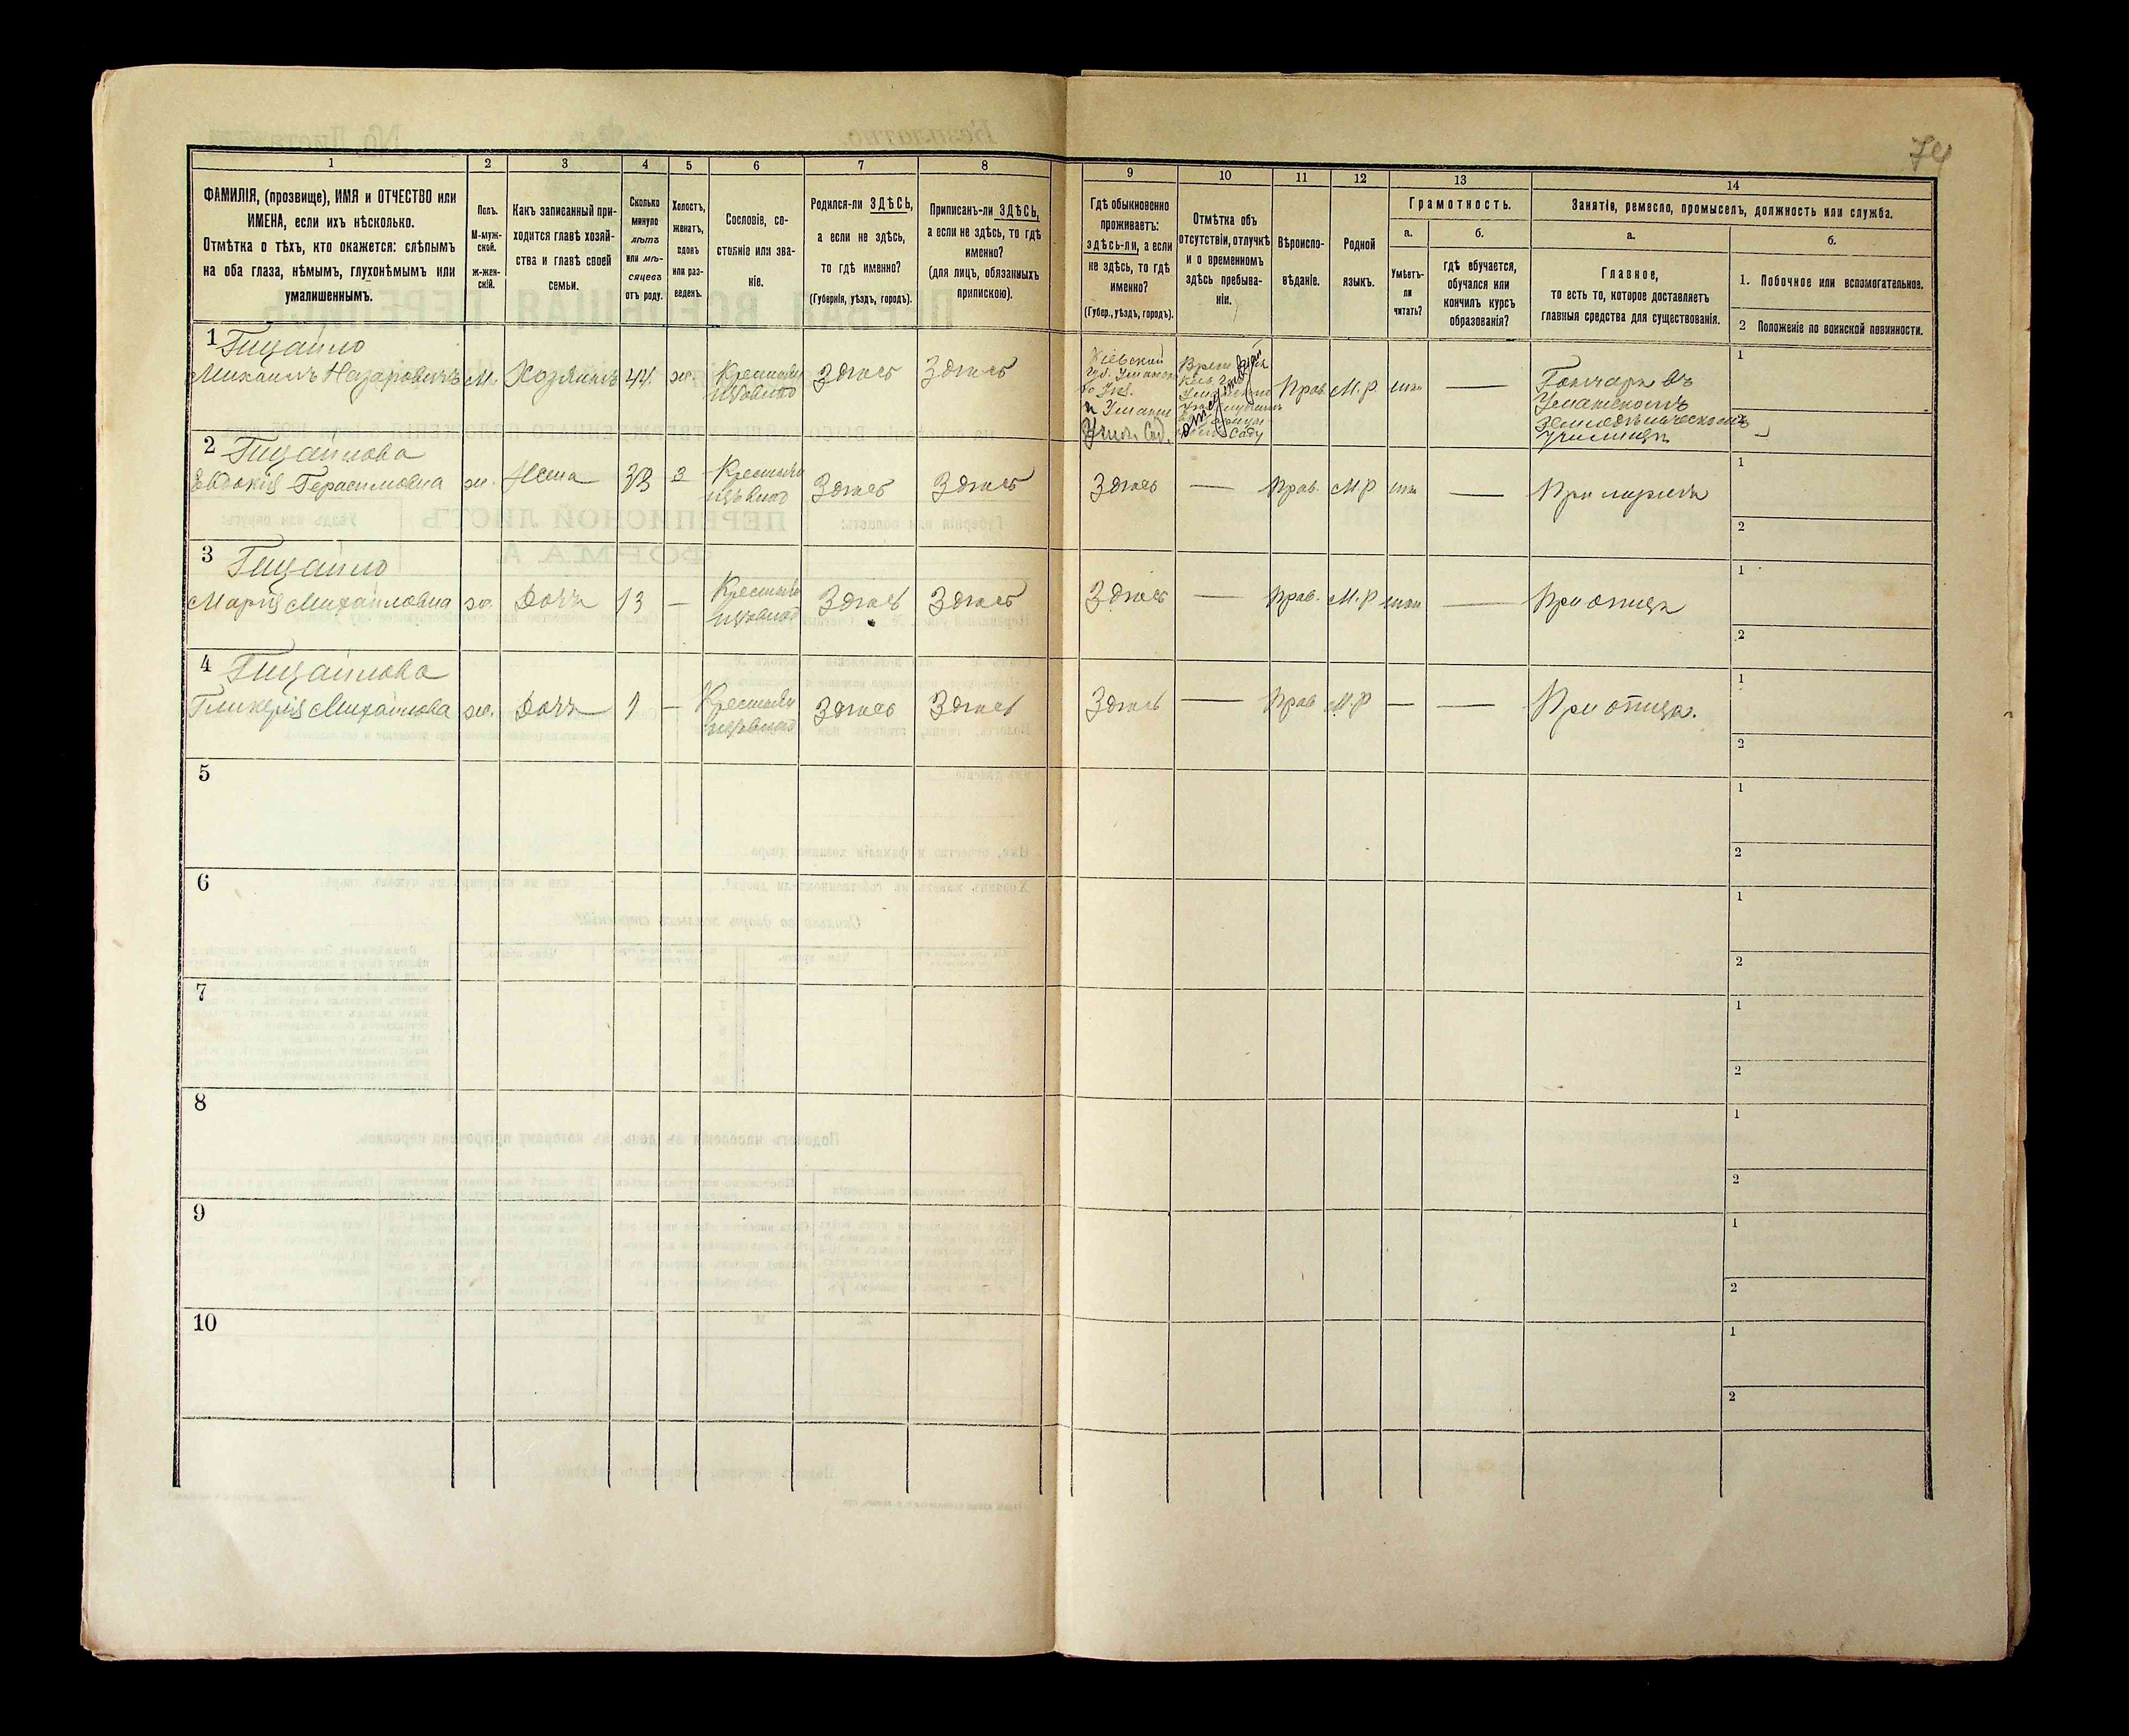 74
1
2
3
4
5
6
7
8
9
10
11
12
13
14
ФАМИЛІЯ, (прозвище), ИМЯ и ОТЧЕСТВО или
ИМЕНА, если ихъ нѣсколько.
Отмѣтка о тѣхъ, кто окажется: слѣпымъ
на оба глаза, нѣмымъ, глухонѣмымъ или
умалишеннымъ.
Полъ.
М-муж-
ской.
ж-жен-
скій.
Какъ записанный при-
ходится главѣ хозяй-
ства и главѣ своей
семьи.
Сколько
минуло
лѣтъ
или мѣ-
сяцевъ
отъ роду.
Холостъ,
женатъ,
вдовъ
или раз-
веденъ.
Сословіе, со-
стояніе или зва-
ніе.
Родился-ли ЗДѢСЬ,
а если не здѣсь,
то гдѣ именно?
(Губернія, уѣздъ, городъ).
Приписанъ-ли ЗДѢСЬ,
а если не здѣсь, то гдѣ
именно?
(для лицъ, обязанныхъ
припискою).
Гдѣ обыкновенно
проживаетъ:
здѣсь-ли, а если
не здѣсь, то гдѣ
именно?
(Губер., уѣздъ, городъ).
Отмѣтка объ
отсутствіи, отлучкѣ
и о временномъ
здѣсь пребыва-
ніи.
Вѣроиспо-
вѣданіе.
Родной
языкъ.
Грамотность.
а.
Умѣетъ-
ли
читать?
б.
гдѣ обучается,
обучался или
кончилъ курсъ
образованія?
Занятія, ремесло, промыселъ, должность или служба.
а.
Главное,
то есть то, которое доставляетъ
главныя средства для существованія.
б.
1. Побочное или вспомогательное.
2 Положеніе по воинской повинности.
1 Гицайло
Михаилъ Назаровичъ М. Хозяинъ 44. ж. Здѣсь Здѣсь Прав. М.Р.
Уманскомъ
Земледѣльческомъ
Училищѣ
1
2
2 Гицайлова
Евдокія Герасимовна ж. Жена з Здѣсь Здѣсь Здѣсь — Прав. М.Р. —
1
2
3 Гицайло
Марія Михайловна ж. Дочь 13 — Здѣсь Здѣсь Здѣсь — Прав. М.Р. — При отцѣ
1
2
4 Гицайлова
Гликерія Михайлова ж. Дочь — Здѣсь Здѣсь Здѣсь — Прав М.Р — — При отцѣ.
1
2
5
1
2
6
1
2
7
1
2
8
1
2
9
1
2
10
1
2